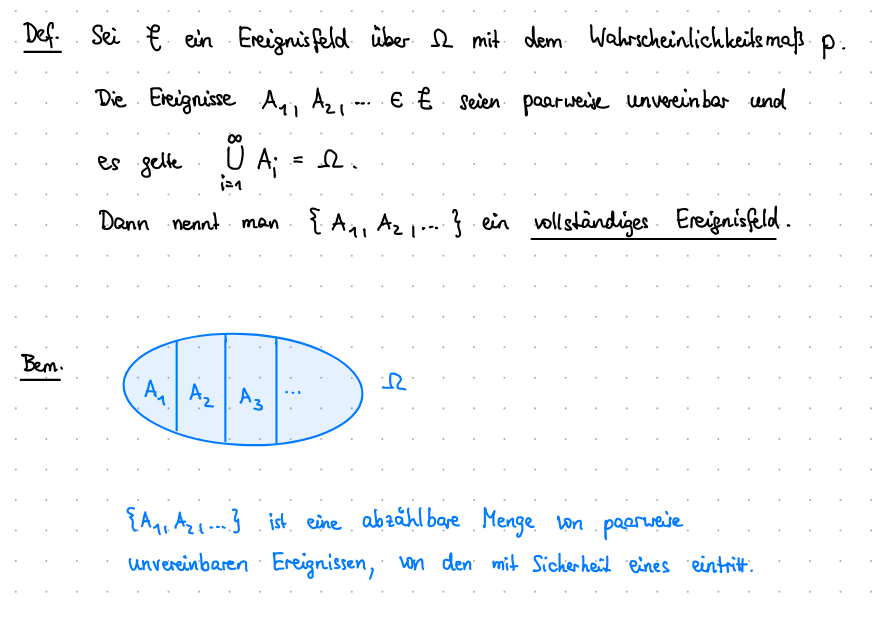 Def. Sei ℰ ein Ereignisfeld über Ω mit dem Wahrscheinlichkeitsmaß p.
Die Ereignisse A₁, A₂, ... ∈ ℰ seien paarweise unvereinbar und
es gelte ⋃_{i=1}^{∞} A_i = Ω.
Dann nennt man { A₁, A₂, ... } ein vollständiges Ereignisfeld.
Bem.
A₁ A₂ A₃ ... Ω
{A₁, A₂, ...} ist eine abzählbare Menge von paarweise
unvereinbaren Ereignissen, von den mit Sicherheit eines eintritt.